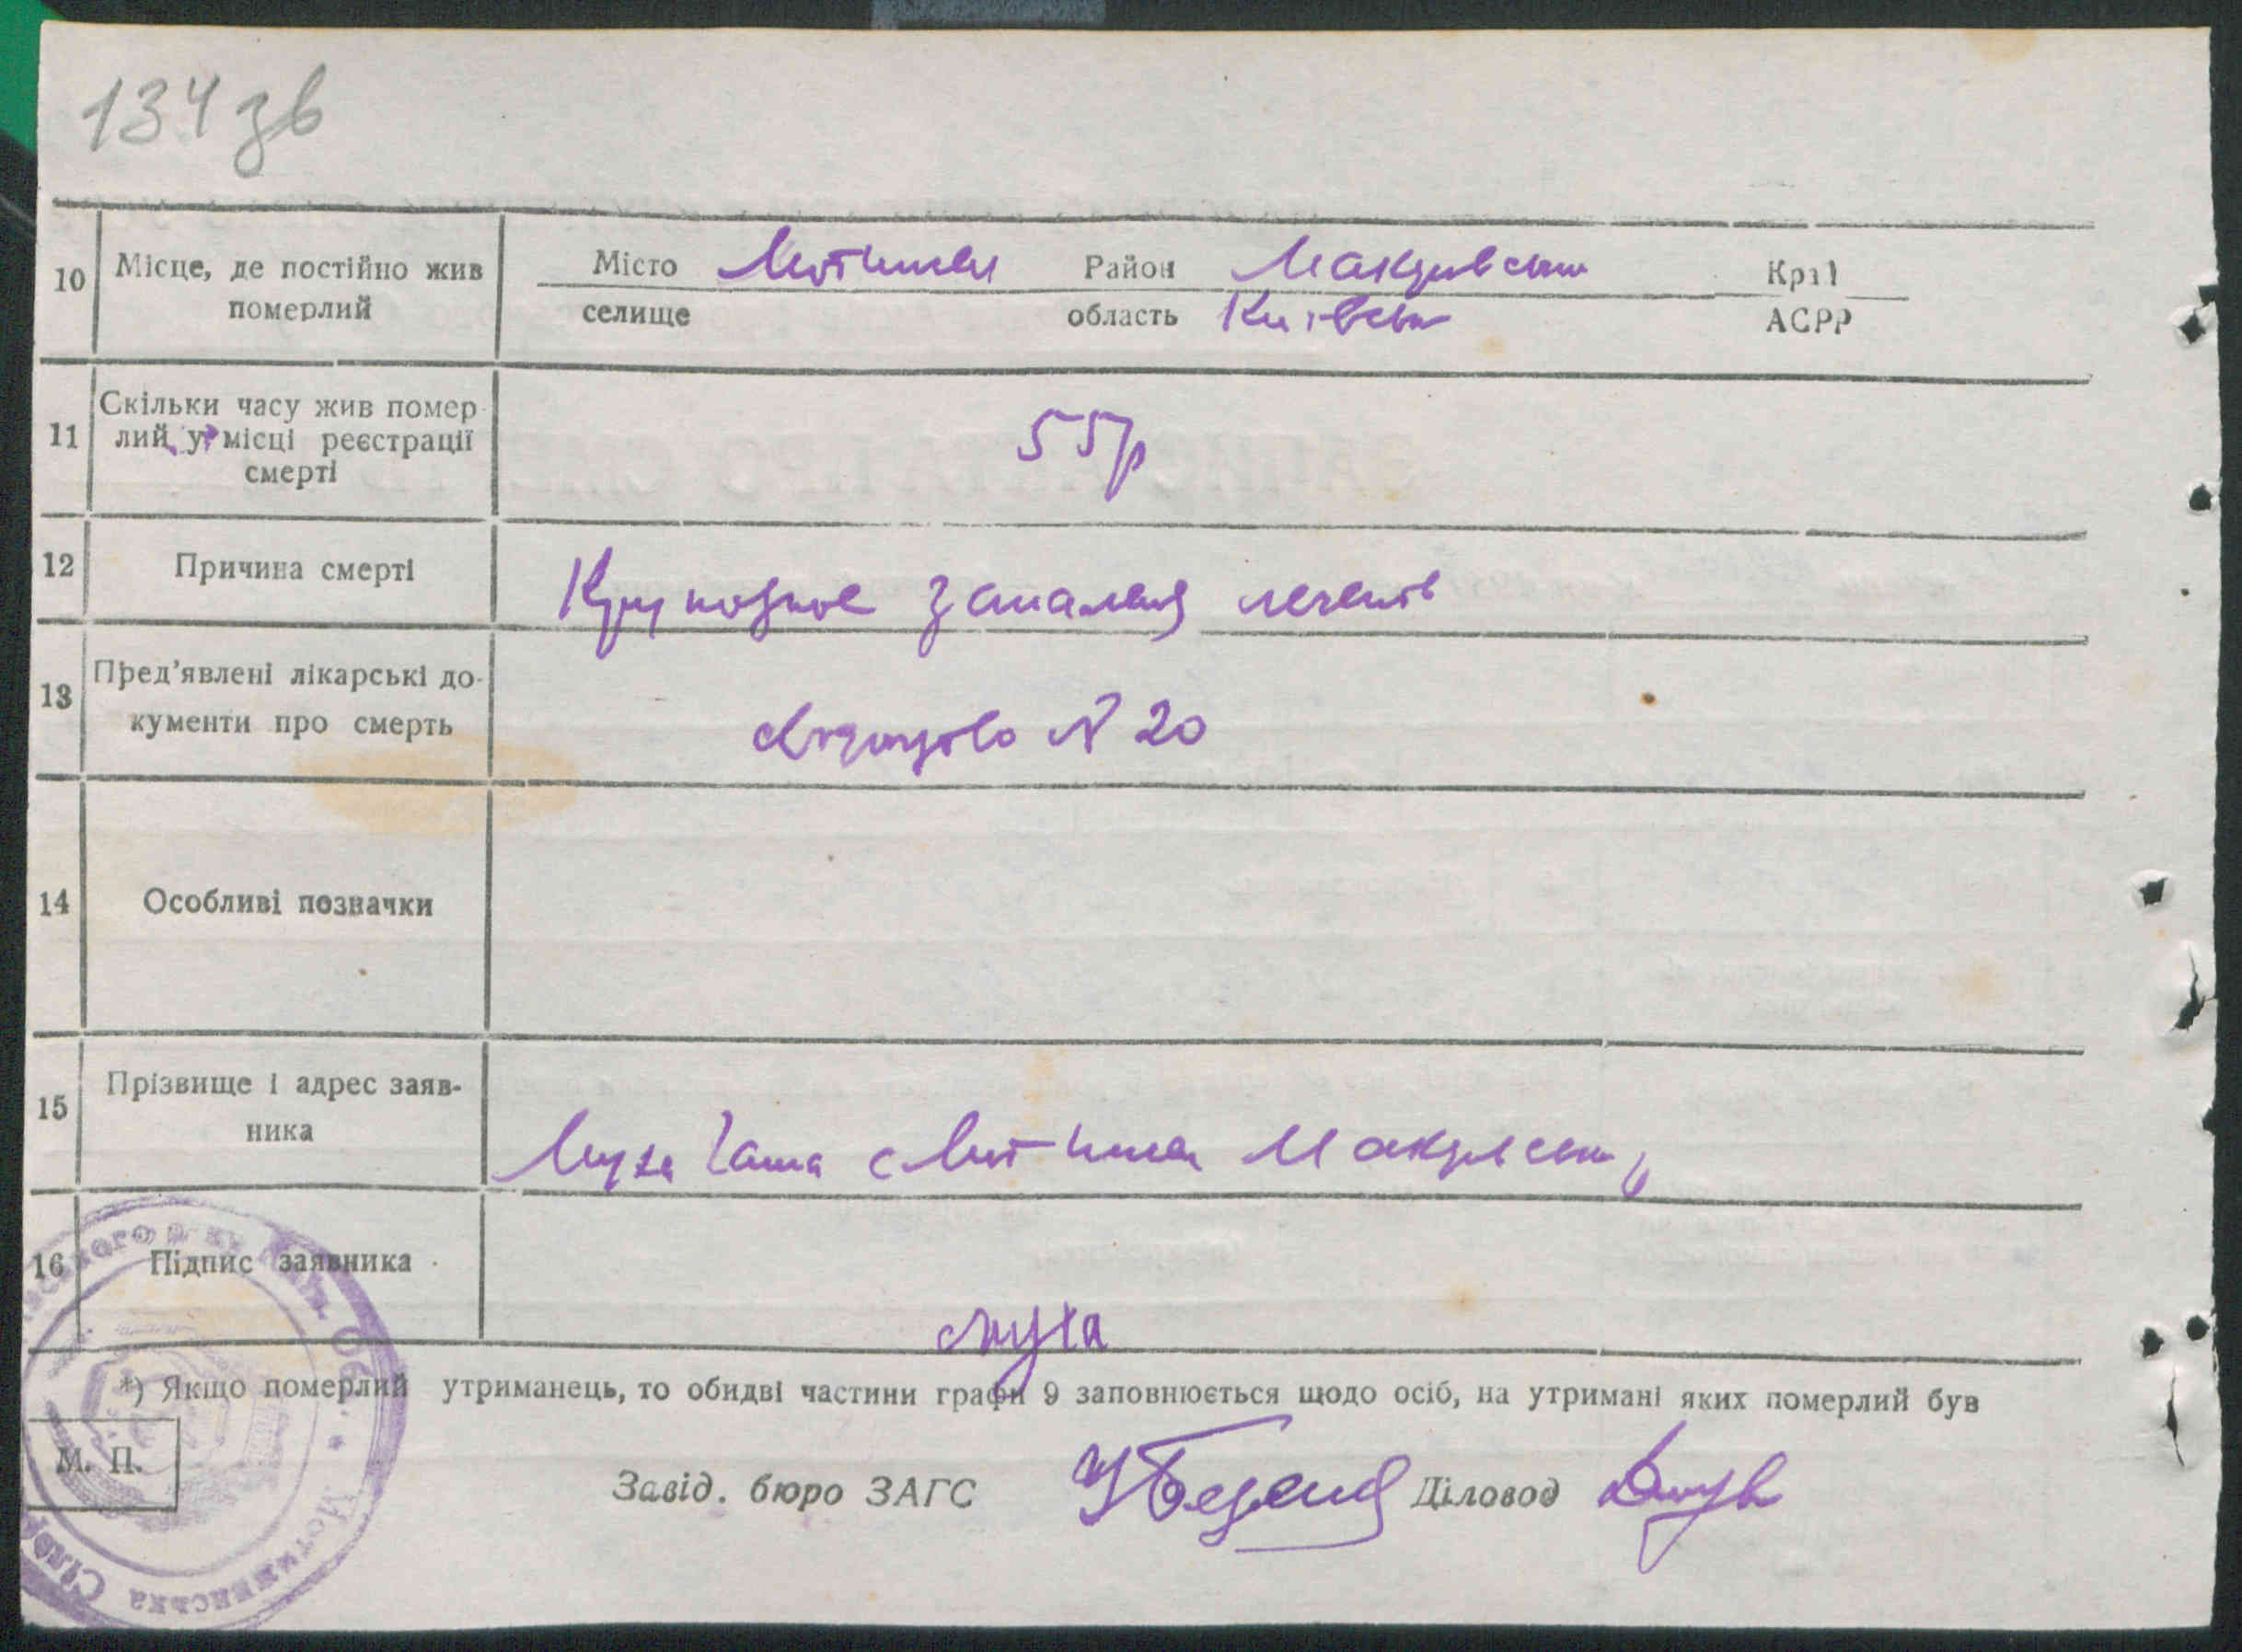 134 зв
10 Місце, де постійно жив померлий
Місто Мотижин Район Макарівськ Край
селище область Київськ АСРР
11 Скільки часу жив помер-
лий у місці реєстрації
смерті
55р
12 Причина смерті
Крупозное запаления легенів
13 Пред'явлені лікарські до-
кументи про смерть
№ 20
14 Особливі позначки
15 Прізвище і адрес заяв-
ника
Муха с Мотижин Макарівськ
16 Підпис заявника
Муха
*) Якщо померлий утриманець, то обидві частини графи 9 заповнюється щодо осіб, на утримані яких померлий був
М. П.
Завід. бюро ЗАГС Діловод
Мотижинська